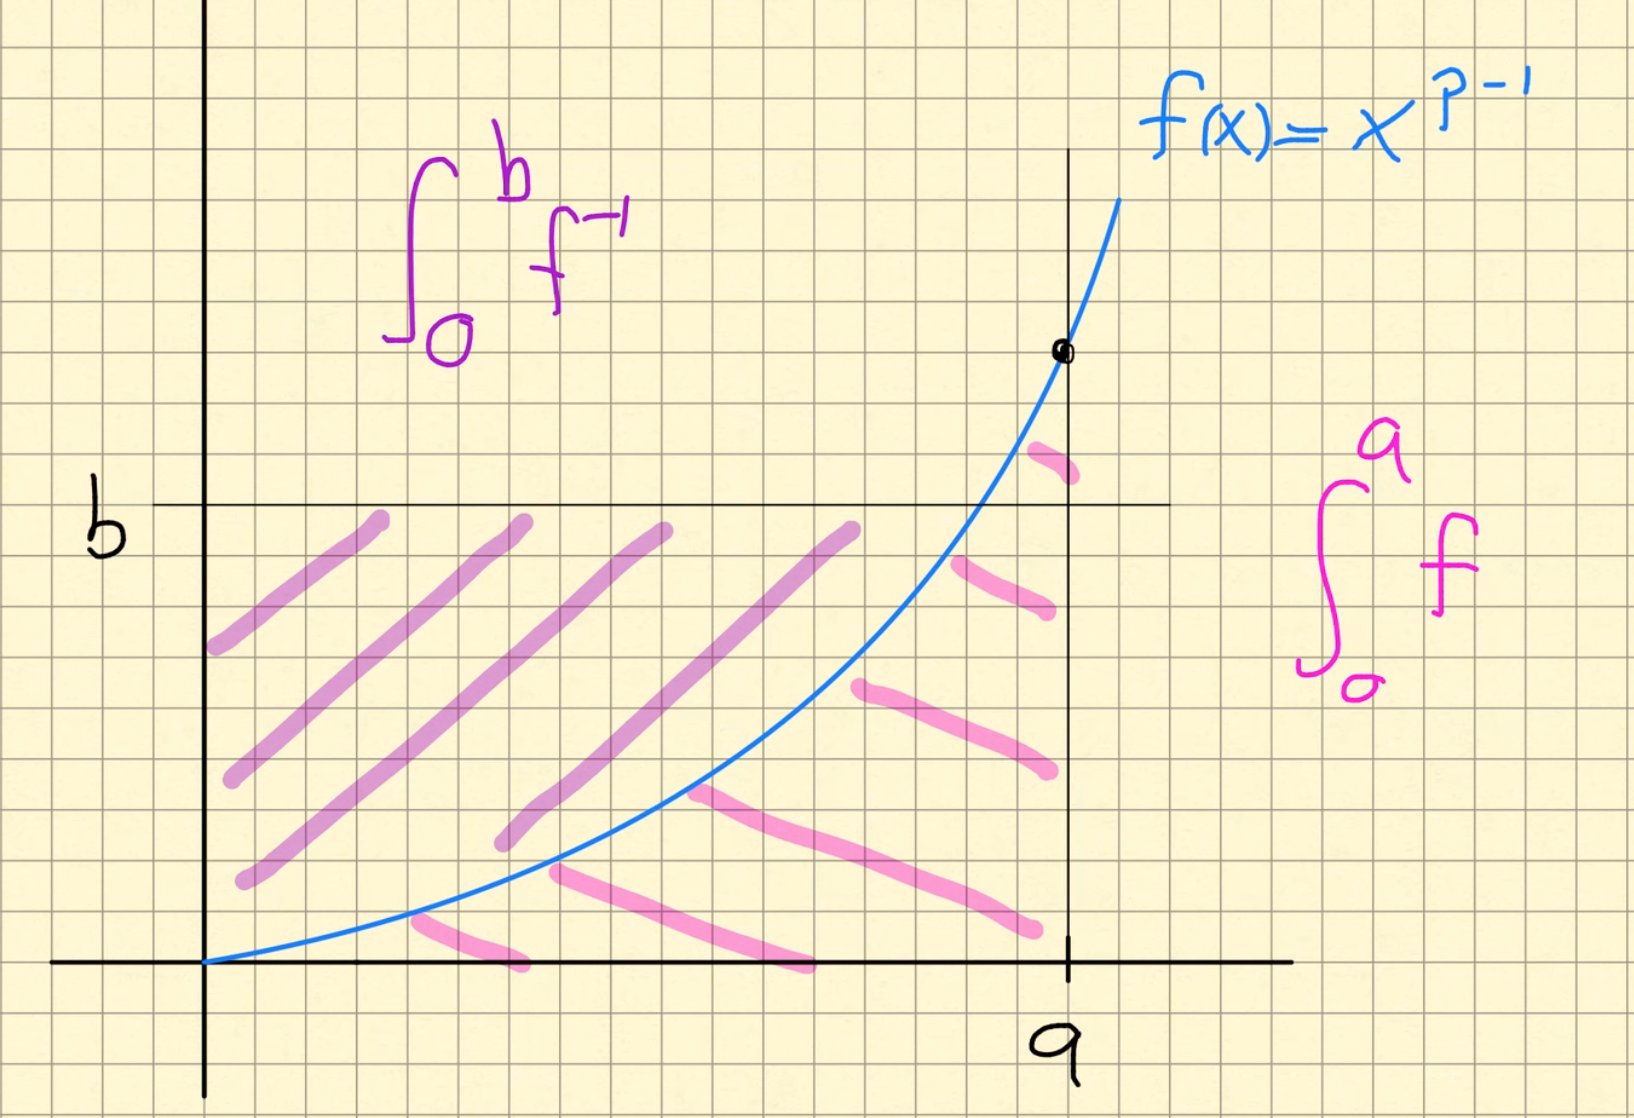 f(x) = x^{p-1}
∫_0^b f^{-1}
∫_0^a f
b
a